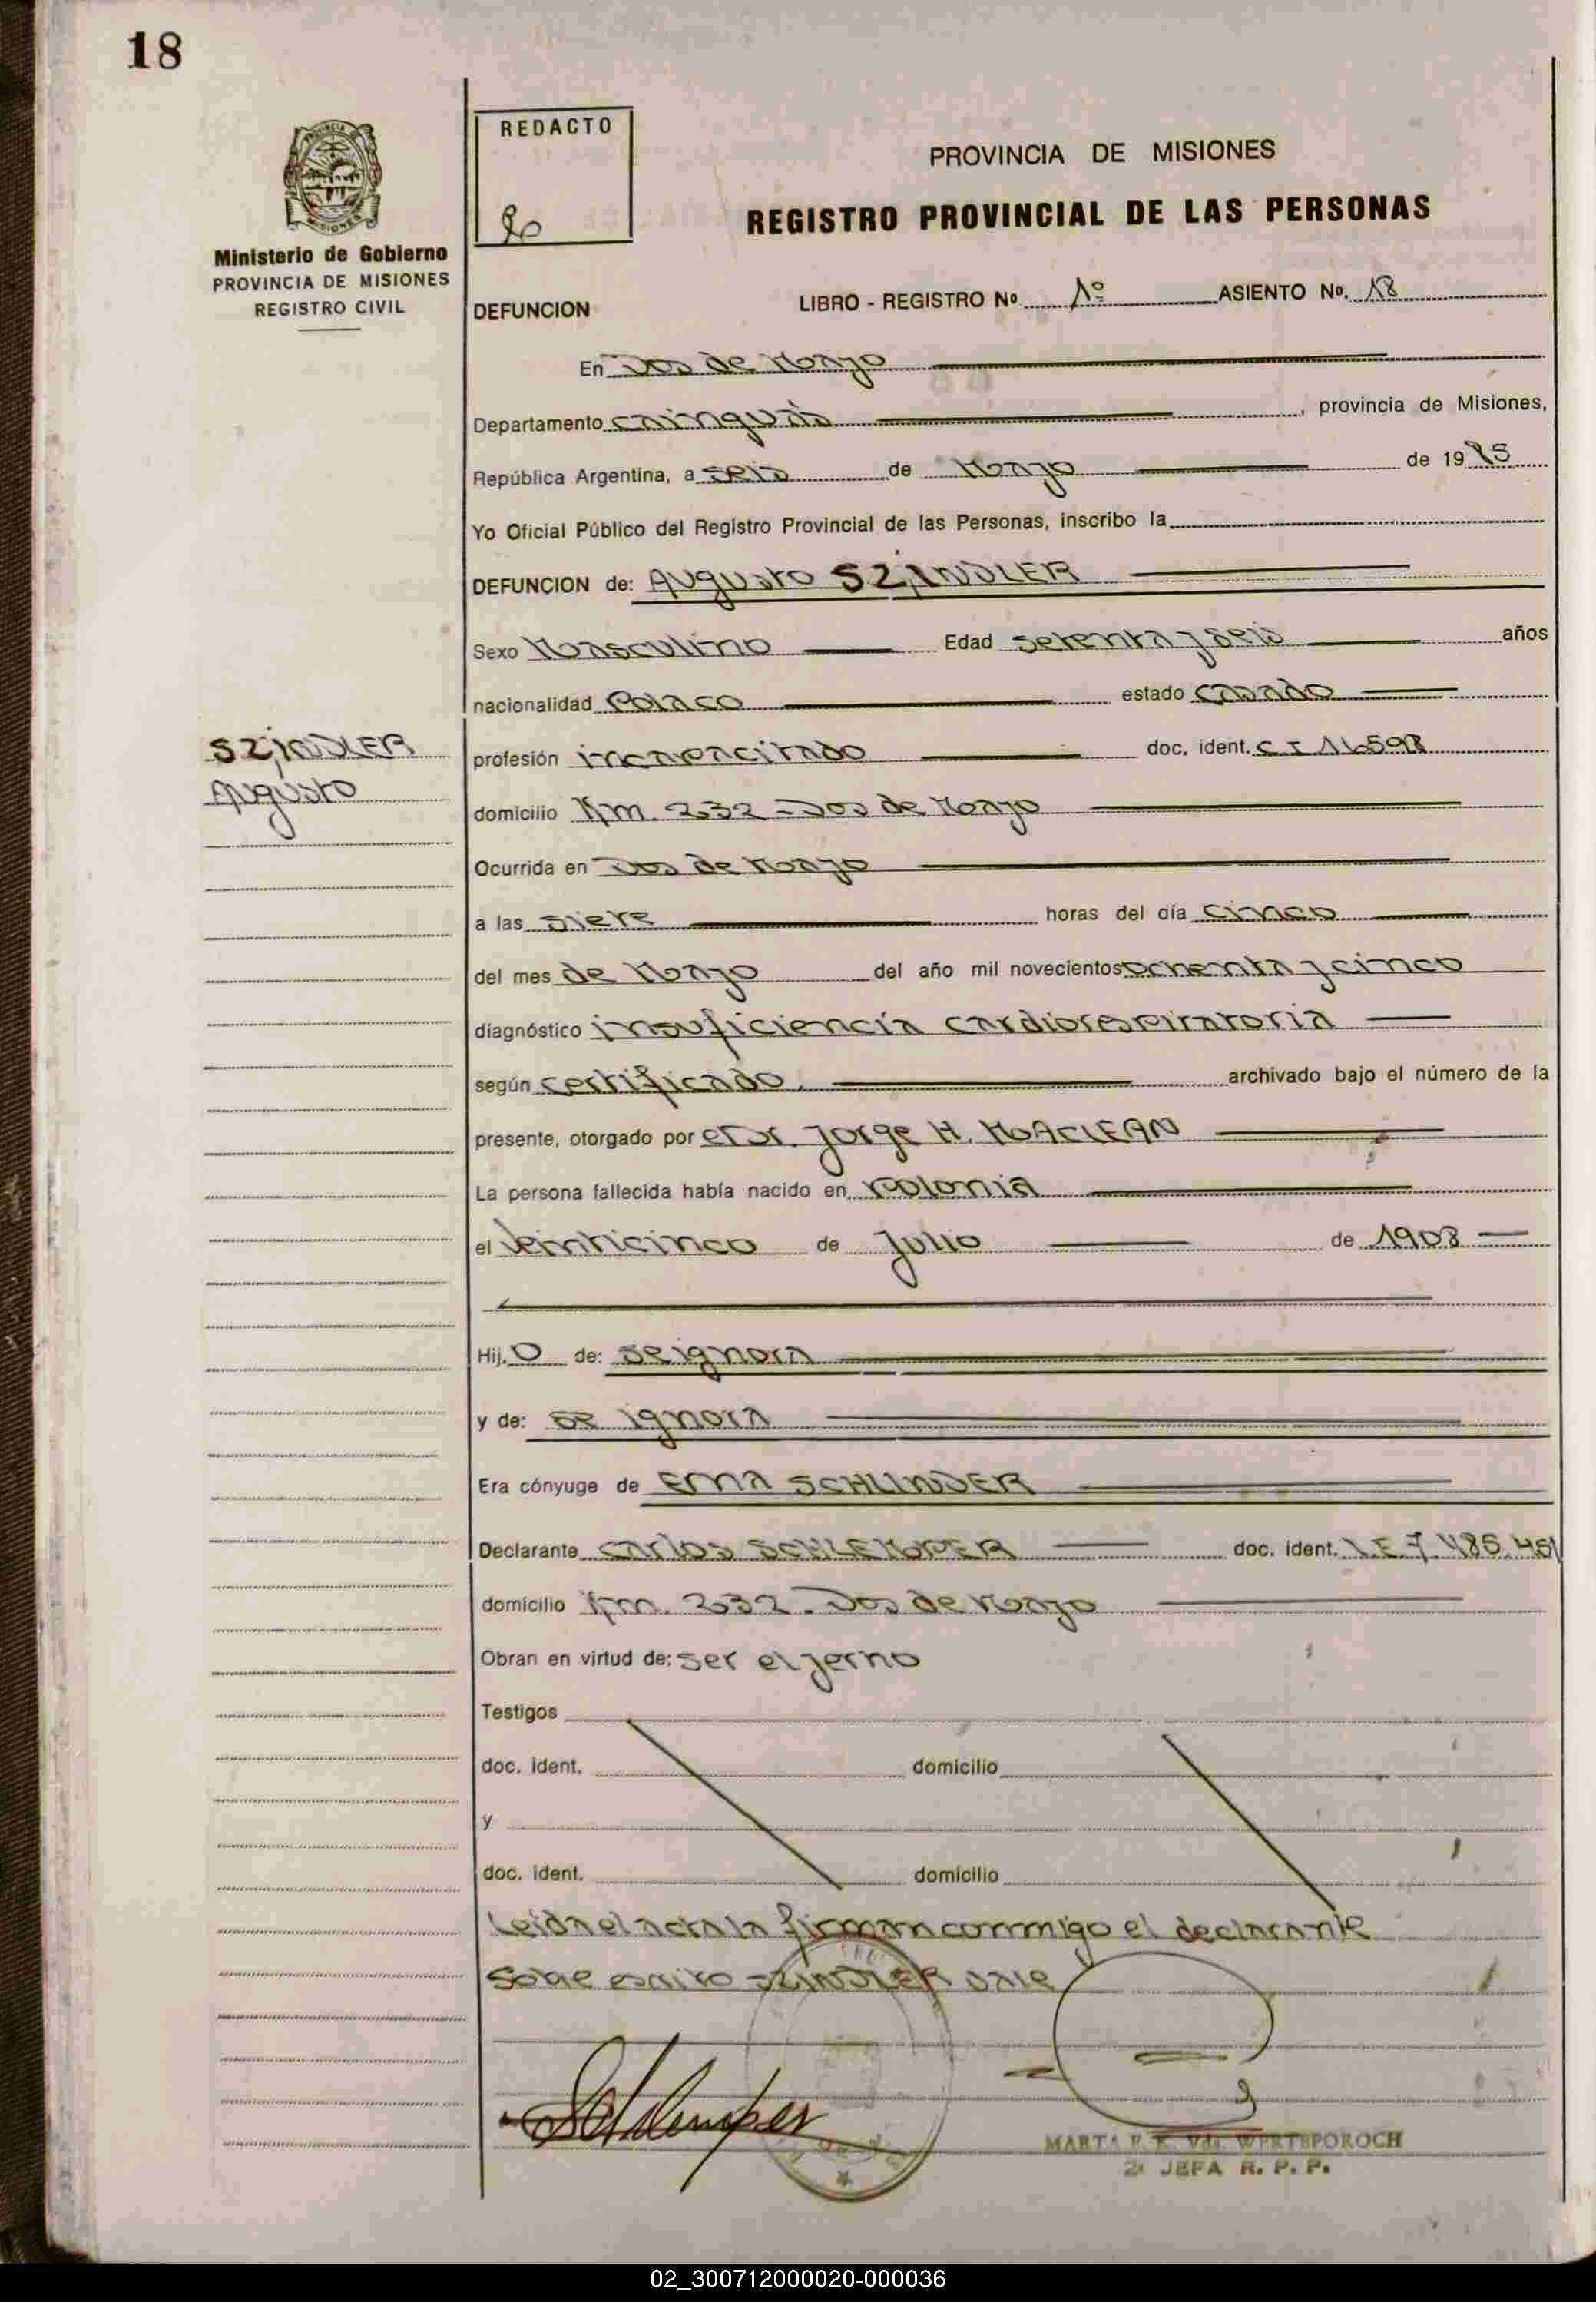 18
REDACTO
PROVINCIA DE MISIONES
REGISTRO PROVINCIAL DE LAS PERSONAS
Ministerio de Gobierno
PROVINCIA DE MISIONES
REGISTRO CIVIL
DEFUNCION
LIBRO - REGISTRO Nº 1º ASIENTO Nº. 18
En Dos de Mayo
Departamento Cainguás, provincia de Misiones,
República Argentina, a seis de Mayo de 1985
Yo Oficial Público del Registro Provincial de las Personas, inscribo la
DEFUNCION de: Augusto SZINDLER
Sexo Masculino Edad setenta y seis años
nacionalidad Polaco estado casado
SZINDLER
Augusto
profesión incapacitado doc. ident. C I
domicilio Km. 232 - Dos de Mayo
Ocurrida en Dos de Mayo
a las siete horas del día cinco
del mes de Mayo del año mil novecientos ochenta y cinco
diagnóstico insuficiencia cardiorespiratoria
según certificado. archivado bajo el número de la
presente, otorgado por el Dr. Jorge H. MACLEAN
La persona fallecida había nacido en Polonia
el veinticinco de Julio de 1908
Hij.o de: se ignora
y de: se ignora
Era cónyuge de Erna SCHLINDER
Declarante Carlos SCHLEMPER doc. ident. L.E. 7.485.451
domicilio Km. 232 - Dos de Mayo
Obran en virtud de: ser el yerno
Testigos
doc. ident. domicilio
y
doc. ident. domicilio
Leida el acta la firman conmigo el declarante
Sobre escrito SZINDLER vale
Schlemper
MARTA E. K. Vda. WERTEPOROCH
2ª JEFA R. P. P.
02_300712000020-000036